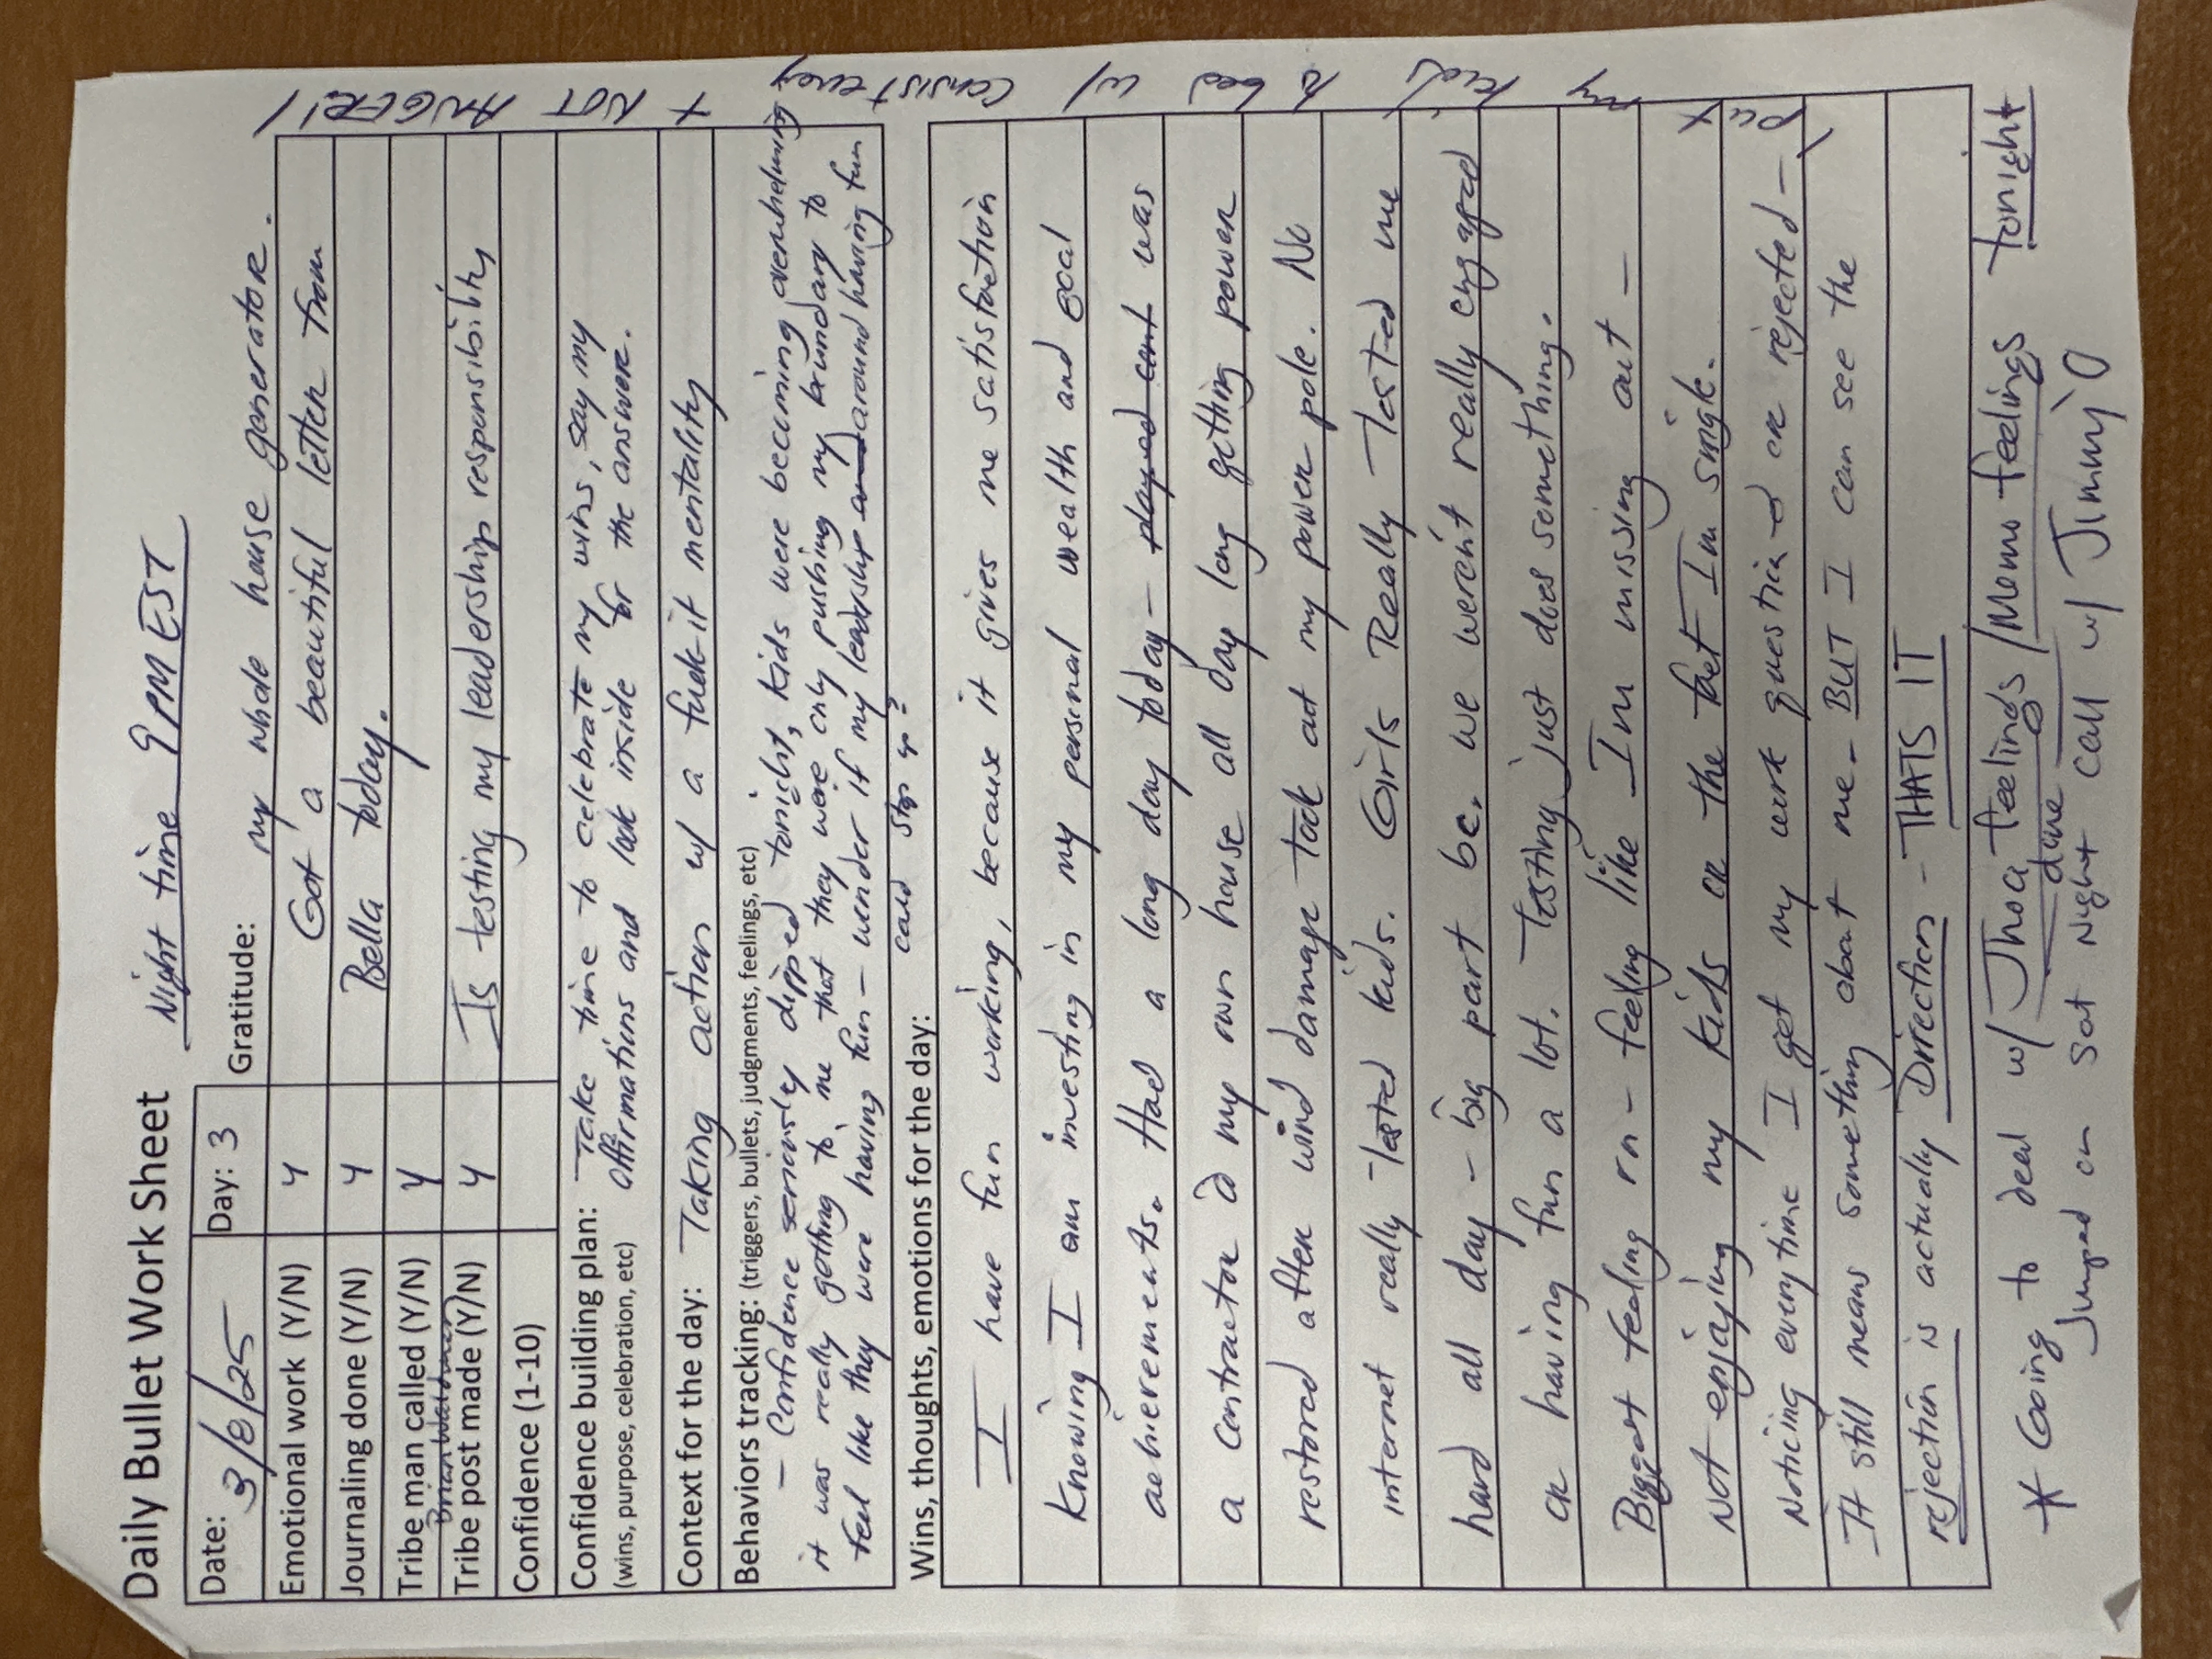 Daily Bullet Work Sheet
Night time 9PM EST
Date: 3/8/25
Day: 3
Gratitude:
my whole house generator.
Got a beautiful letter from
Bella today.
Is testing my leadership responsibility
Emotional work (Y/N) Y
Journaling done (Y/N) Y
Tribe man called (Y/N) Y
Brian
Tribe post made (Y/N) Y
Confidence (1-10)
Confidence building plan: Take time to celebrate my wins, say my
(wins, purpose, celebration, etc) affirmations and look inside for the answers.
Context for the day: Taking action w/ a fuck-it mentality
Behaviors tracking: (triggers, bullets, judgments, feelings, etc)
- Confidence seriously dipped tonight, kids were becoming overwhelming
it was really getting to me that they were only pushing my boundary to
feel like they were having fun - wonder if my leadership and around having fun
could step up?
Wins, thoughts, emotions for the day:
I have fun working, because it gives me satisfaction
Knowing I am investing in my personal wealth and goal
achievements. Had a long day today - played cont was
a contractor @ my own house all day long getting power
restored after wind damage took out my power pole. No
internet really tested kids. Girls Really Tested me
hard all day - big part bc. we weren't really engaged
or having fun a lot. Testing just does something.
Biggest feeling rn - feeling like I'm missing out -
Not enjoying my kids or the fact I'm single.
Noticing everytime I get my work questioned or rejected -
It still means something about me - BUT I can see the
rejection is actually Direction - THATS IT
* Going to deal w/ Jhoa feelings / Mom feelings tonight
done
Jumped on sat Night call w/ Jimmy O
\ Put my kids to bed w/ consistency + NOT ANGER! /